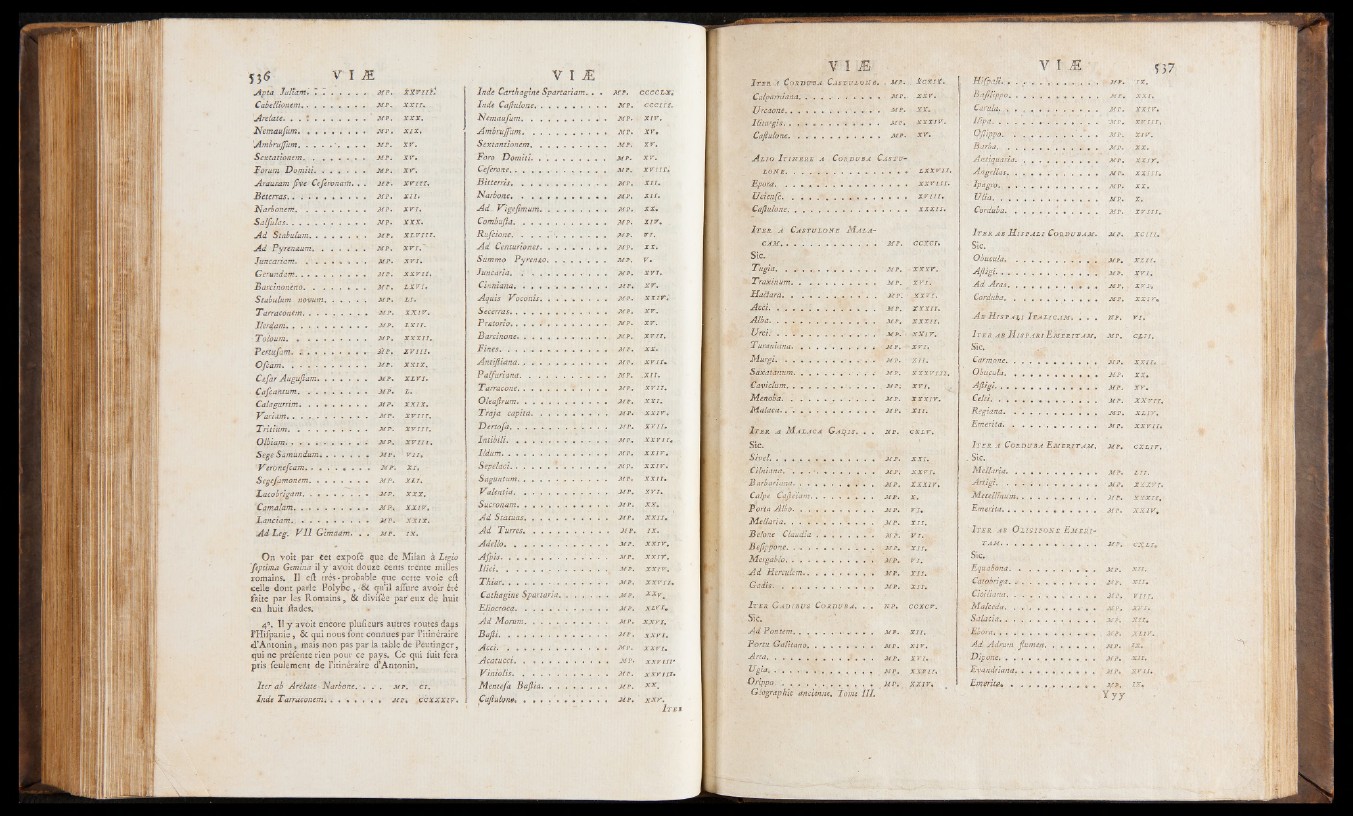 536 V I Æ
Apta Juliam. . . . . . . MP. XXVIII.
Cabellionem. . . . . . . MP. XXII.
Arelate. . . . . . . . MP. XXX.
Nemausum. . . . . . . MP. XIX.
Ambrussum. . . . . . . MP. XV.
Sextationem. . . . . . . MP. XV.
Forum Domiti. . . . . . MP. XV.
Arauram sive Ceseronem. . . MP. XVIII.
Beterras. . . . . . . . MP. XII.
Narbonem. . . . . . . MP. XVI.
Salsulas. . . . . . . . MP. XXX.
Ad Stabulum. . . . . . MP. XLVIII.
Ad Pyrenæum. . . . . . MP. XVI.
Juncariam. . . . . . . MP. XVI.
Gerundam. . . . . . . MP. XXVII.
Barcinonem. . . . . . . MP. LXVI.
Stabulum novum. . . . . MP. LI.
Tarraconem. . . . . . . MP. XXIV.
Ilerdam. . . . . . . . MP. LXII.
Toloum. . . . . . . . MP. XXXII.
Pertusam. . . . . . . . MP. XVIII.
Oscam. . . . . . . . MP. XXIX.
Cesar Augustam. . . . . . MP. XLVI.
Cascantum. . . . . . . MP. L.
Calagurrim. . . . . . . MP. XXIX.
Variam. . . . . . . . MP. XVIII.
Tritium. . . . . . . . MP. XVIII.
Olbium. . . . . . . . MP. XVIII.
Sege Samundum. . . . . . MP. VII.
Veronescam. . . . . . . MP. XI.
Segesamonem. . . . . . . MP. XLI.
Lacobrigam. . . . . . . MP. XXX.
Camalam. . . . . . . . MP. XXIV.
Lanciam. . . . . . . . MP. XXIX.
Ad Leg. VII Gimnam. . . MP. IX.
On voit par cet exposé que de Milan à Legio
septima Gemina il y avoit douze cents trente milles
romains. Il est très-probable que cette voie est
celle dont parle Polybe, & qu'il assure avoir été
faite par les Romains, & divisée par eux de huit
en huit stades.
4°. Il y avoit encore plusieurs autres routes dans
l'Hispanie, & qui nous sont connues par l'itinéraire
d'Antonin, mais non pas par la table de Peutinger,
qui ne présente rien pour ce pays. Ce qui suit sera
pris seulement de l'itinéraire d'Antonin.
Iter ab Arelate Narbone. . . . MP. CI.
Inde Tarraconem. . . . . . . MP. CCXXXIV.
V I Æ
Inde Carthagine Spartariam. . . MP. CCCCLX.
Inde Castulone. . . . . . . MP. CCCIII.
Nemausum. . . . . . . MP. XIV.
Ambrussum. . . . . . . MP. XV.
Sextantionem. . . . . . . MP. XV.
Foro Domiti. . . . . . . MP. XV.
Ceserone. . . . . . . . MP. XVIII.
Bitterris. . . . . . . . MP. XII.
Narbone. . . . . . . . MP. XII.
Ad Vigesimum. . . . . . MP. XX.
Combusta. . . . . . . . MP. XIV.
Ruscione. . . . . . . . MP. VI.
Ad Centuriones. . . . . . MP. XX.
Summo Pyrenæo. . . . . . MP. V.
Juncaria. . . . . . . . MP. XVI.
Cinniana. . . . . . . . MP. XV.
Aquis Voconis. . . . . . . MP. XXIV.
Secerras. . . . . . . . MP. XV.
Prætorio. . . . . . . . MP. XV.
Barcinone. . . . . . . . MP. XVII.
Fines. . . . . . . . . MP. XX.
Antistiana. . . . . . . . MP. XVII.
Palfuriana. . . . . . . . MP. XII.
Tarracone. . . . . . . . MP. XVII.
Oleastrum. . . . . . . . MP. XXI.
Traja capita. . . . . . . MP. XXIV.
Dertosa. . . . . . . . MP. XVII.
Intibili. . . . . . . . MP. XXVII.
Ildum. . . . . . . . . MP. XXIV.
Sepelaci. . . . . . . . MP. XXIV.
Saguntum. . . . . . . . MP. XXII.
Valentia. . . . . . . . MP. XVI.
Sucronum. . . . . . . . MP. XX.
Ad Statuas. . . . . . . MP. XXII.
Ad Turres. . . . . . . MP. IX.
Adello. . . . . . . . . MP. XXIV.
Aspis. . . . . . . . . MP. XXIV.
Ilici. . . . . . . . . MP. XXIV.
Thiar. . . . . . . . . MP. XXVII.
Cathagine Spartaria. . . . . MP. XXV.
Eliocroca. . . . . . . . MP. XLVI.
Ad Morum. . . . . . . MP. XXVI.
Basti. . . . . . . . . MP. XXVI.
Acci. . . . . . . . . MP. XXVI.
Acatucci. . . . . . . . MP. XXVIII.
Viniolis. . . . . . . . MP. XXVIII.
Mentesa Bastia. . . . . . MP. XX.
Castulone. . . . . . . . MP. XXV.
ITER
V I Æ
ITER A CORDUBA CASTULONE. . MP. XCXIX.
Calpurniana. . . . . . . MP. XXV.
Urcaone. . . . . . . . MP. XX.
Iliturgis. . . . . . . . MP. XXXIV.
Castulone. . . . . . . . MP. XV.
ALIO ITINERE A CORDUBA CASTU-
LONE. . . . . . . . . LXXVII.
Epora. . . . . . . . . XXVIII.
Uciense. . . . . . . . . XVIII.
Castulone. . . . . . . . XXXII.
ITER A CASTULONE MALA-
CAM. . . . . . . . . MP. CCXCI.
Sic.
Tugia. . . . . . . . . MP. XXXV.
Fraxinum. . . . . . . . MP. XVI.
Hactara. . . . . . . . MP. XXVI.
Acci. . . . . . . . . MP. XXXII.
Alba. . . . . . . . . MP. XXXII.
Urci. . . . . . . . . MP. XXIV.
Turaniana. . . . . . . . MP. XVI.
Murgi. . . . . . . . . MP. XII.
Saxatanum. . . . . . . MP. XXXVIII.
Caviclum. . . . . . . . MP. XVI.
Menoba. . . . . . . . MP. XXXIV.
Malaca. . . . . . . . MP. XII.
ITER A MALACA GADIS. . . MP. CXLV.
Sic.
Sivel. . . . . . . . . MP. XXI.
Cilniana. . . . . . . . MP. XXVI.
Barbariana. . . . . . . . MP. XXXIV.
Calpe Casteiam. . . . . . MP. X.
Porta Albo. . . . . . . MP. VI.
Mellaria. . . . . . . . MP. XII.
Belone Claudia . . . . . . MP. VI.
Besippone. . . . . . . . MP. XII.
Mergablo. . . . . . . . MP. VI.
Ad Herculem. . . . . . . MP. XII.
Gadis. . . . . . . . . MP. XII.
ITER GADIBUS CORDUBA. . . MP. CCXCV.
Sic.
Ad Pontem. . . . . . . MP. XII.
Portu Gaditano. . . . . . MP. XIV.
Asta. . . . . . . . . MP. XVI.
Ugia. . . . . . . . . MP. XXVII.
Orippo. . . . . . . . MP. XXIV.
Géographie ancienne. Tome III.
V I Æ 537
Hispali. . . . . . . . MP. IX.
Basilippo. . . . . . . . MP. XXI.
Carula. . . . . . . . MP. XXIV.
Ilipa. . . . . . . . . MP. XVIII.
Ostippo. . . . . . . . MP. XIV.
Barba. . . . . . . . . MP. XX.
Antiquaria. . . . . . . MP. XXIV.
Angellas. . . . . . . . MP. XXIII.
Ipagro. . . . . . . . MP. XX.
Ulia. . . . . . . . . MP. X.
Corduba. . . . . . . . MP. XVIII.
ITER AB HISPALI CORDUBAM. MP. XCIII.
Sic.
Obucula. . . . . . . . MP. XLII.
Astigi. . . . . . . . . MP. XVI.
Ad Aras. . . . . . . . MP. XVI.
Corduba. . . . . . . . MP. XXIV.
AB HISPALI ITALICAM. . . . MP. VI.
ITER AB HISPALI EMERITAM. MP. CLII.
Sic.
Carmone. . . . . . . . MP. XXII.
Obucula. . . . . . . . MP. XX.
Astigi. . . . . . . . . MP. XV.
Celti. . . . . . . . . MP. XXVII.
Regiana. . . . . . . . MP. XLIV.
Emerita. . . . . . . . MP. XXVII.
ITER A CORDUBA EMERITAM. MP. CXLIV.
Sic.
Mellaria. . . . . . . . MP. LII.
Artigi. . . . . . . . . MP. XXXVI.
Metellinum. . . . . . . MP. XXXII.
Emerita. . . . . . . . MP. XXIV.
ITER AB OLISIPONE EMERI-
TAM. . . . . . . . . MP. CXLI.
Sic.
Equabona. . . . . . . . MP. XII.
Catobriga. . . . . . . . MP. XII.
Ciciliana. . . . . . . . MP. VIII.
Malceca. . . . . . . . MP. XVI.
Salacia. . . . . . . . MP. XII.
Ebora. . . . . . . . . MP. XLIV.
Ad Adrum flumen. . . . . MP. IX.
Dipone. . . . . . . . MP. XII.
Evandriana. . . . . . . MP. XVII.
Emerita. . . . . . . . MP. IX.
Y y y